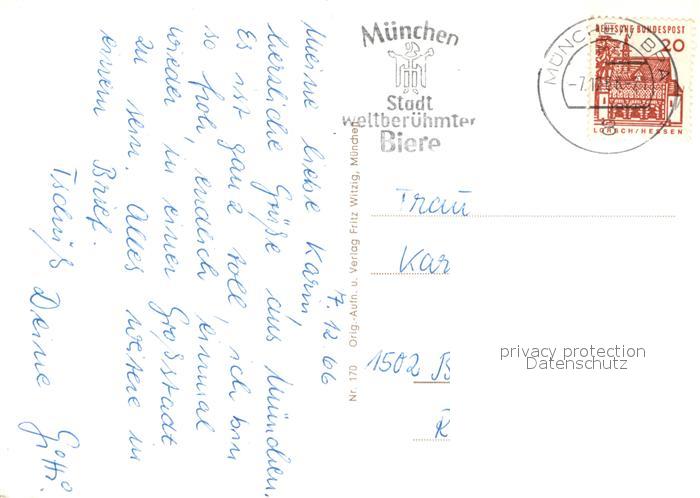 München
Stadt
weltberühmter
Biere
DEUTSCHE BUNDESPOST
20
LORSCH/HESSEN
7.12.66
Meine liebe Karin!
herzliche Grüße aus München.
Es ist ganz toll, ich bin
so froh, endlich einmal
wieder in einer Großstadt
zu sein. Alles weitere in
einem Brief.
Tschüß Deine
Nr. 170 Orig.-Aufn. u. Verlag Fritz Witzig, München
Frau
Kar
1502 B
R
privacy protection
Datenschutz